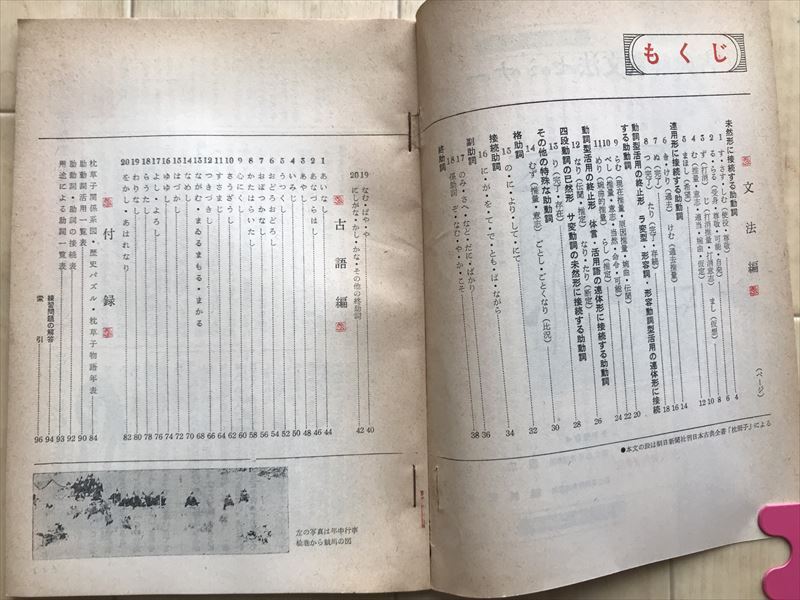 もくじ
文法編
(ページ)
未然形に接続する助動詞
1 す・さす・しむ(使役・尊敬) 4
2 る・らる(受身・尊敬・可能・自発) 6
3 ず(打消) じ(打消推量・打消意志) まし(仮想) 8
4 む(推量・意志・適当・婉曲・仮定) 10
5 まほし(希望) 12
連用形に接続する助動詞
6 き・けり(過去) けむ(過去推量) 14
7 ぬ(完了) 16
8 つ(完了) たり(完了・存続) 18
動詞型活用の終止形 ラ変型・形容詞・形容動詞型活用の連体形に接続
する助動詞
9 らむ(現在推量・原因推量・婉曲・伝聞) 20
10 べし(推量・意志・当然・命令・可能) 22
11 めり(婉曲的推量) らし(推定) 24
動詞型活用の終止形 体言・活用語の連体形に接続する助動詞
12 なり(伝聞・推定) なり・たり(断定) 26
四段動詞の已然形 サ変動詞の未然形に接続する助動詞
13 り(完了・存続) 28
その他の特殊な助動詞
14 むず(推量・意志) ごとし・ごとくなり(比況) 30
格助詞 32
15 の・に・より・して・にて 34
接続助詞
16 に・が・を・て・とも・ば・ながら 36
副助詞
17 のみ・さへ・など・だに・ばかり 38
18 係助詞 ぞ・なむ・や・か・こそ
終助詞
19 なむ・ばや・や 40
20 にしがな・かし・かな・その他の終助詞 42
●本文の段は朝日新聞社刊日本古典全書「枕冊子」による
古語編
1 あいなし 44
2 あなづらはし 46
3 あやし 48
4 いみじ 50
5 うつくし 52
6 おどろおどろし 54
7 おぼつかなし 56
8 かたはらいたし 58
9 くちをし 60
10 さうざうし 62
11 すさまじ 64
12 つきづきし 66
13 ながむ・まゐるまもる・まかる 68
14 なめし 70
15 はづかし 72
16 ゆゆし 74
17 よろし 76
18 らうたし 78
19 わりなし 80
20 をかし・あはれなり 82
付録
枕草子関係系図・歴史パズル・枕草子物語年表 84
助動詞活用一覧表 90
助動詞・助詞の接続表 92
用途による助詞一覧表 93
練習問題の解答 94
索引 96
左の写真は年中行事
絵巻から競馬の図